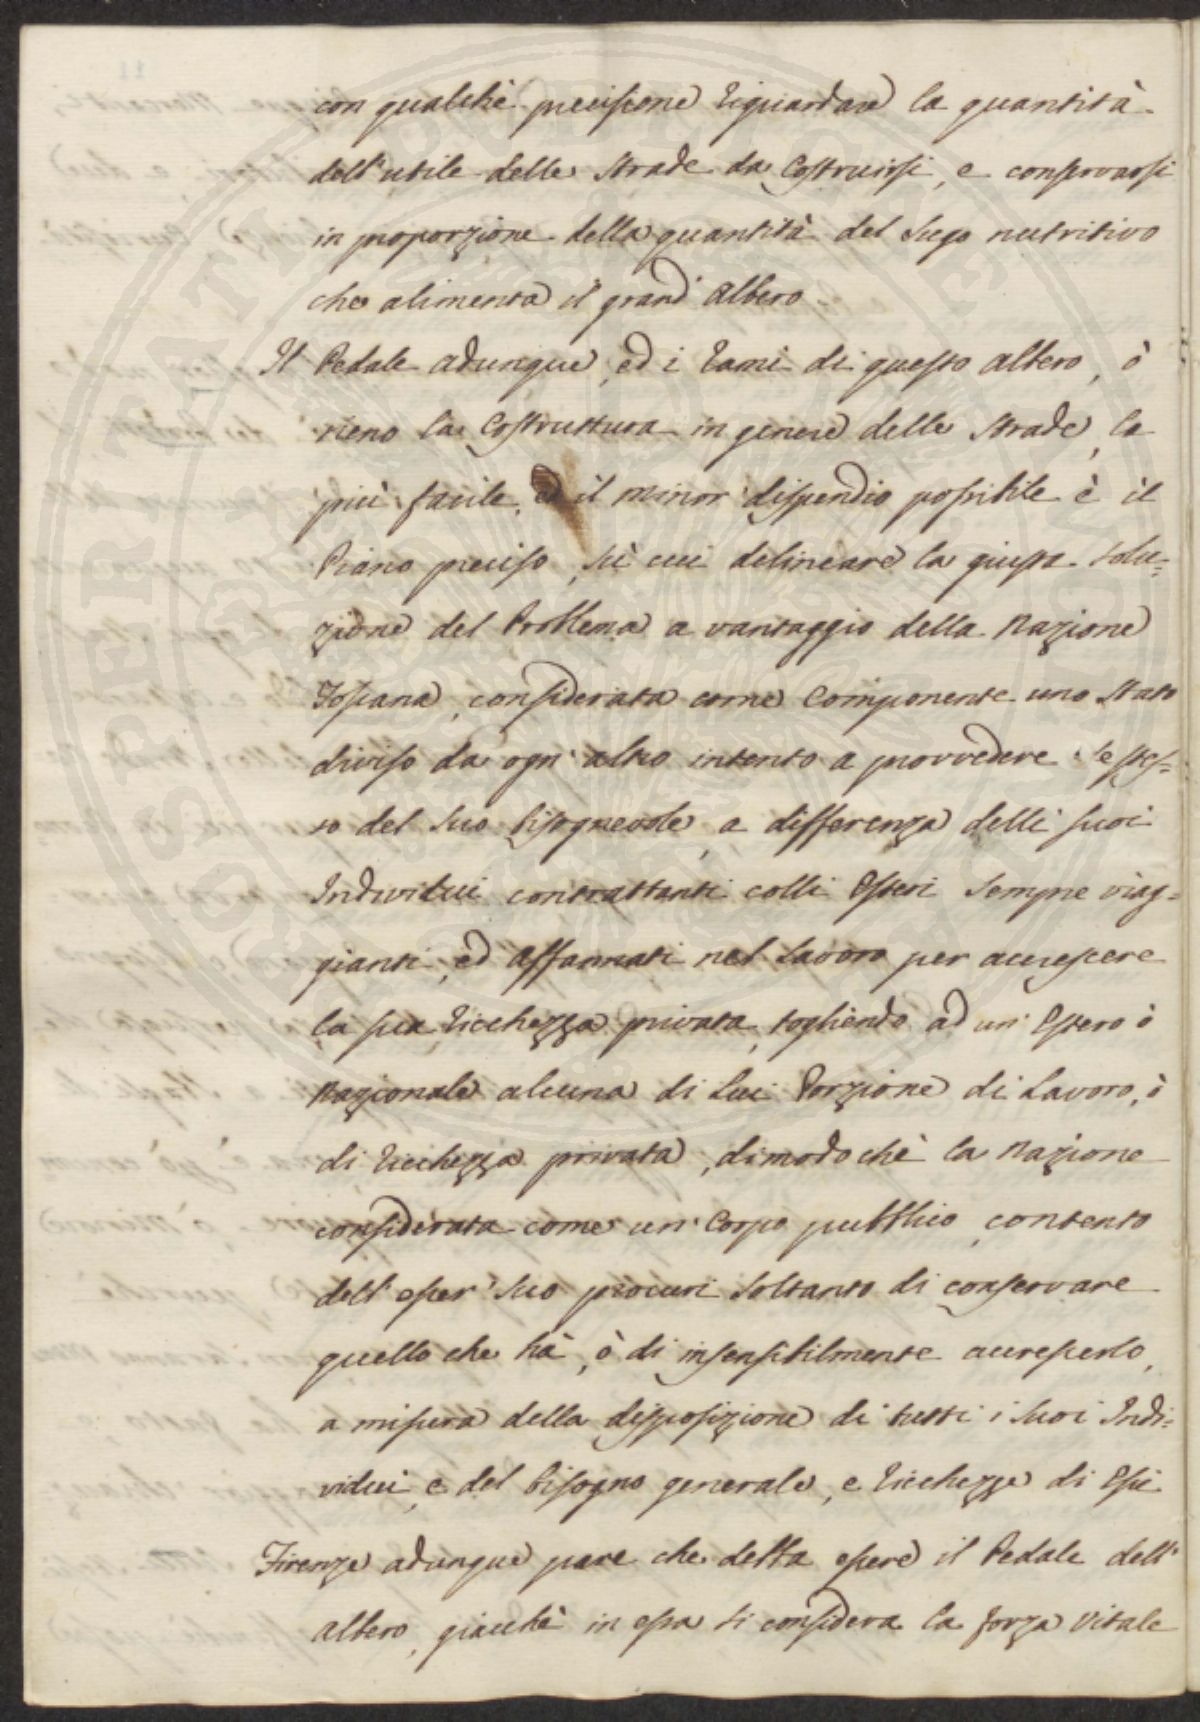 con qualchè precisione riguardare la quantità
dell'utile delle strade da Costruirsi, e conservarsi
in proporzione della quantità del sugo nutritivo
che alimenta il grand'albero.
Il Pedale adunque, ed i rami di questo albero, ò
sieno la Costruttura in genere delle strade, la
più facile, ed il minor dispendio possibile è il
Piano preciso, sù cui delineare la giusta solu=
zione del Problema a vantaggio della Nazione
Toscana, considerata come Componente uno Stato
diviso da ogn'altro intento a provvedere se stes=
so del suo bisognevole, a differenza delli suoi
Individui contrattanti colli Esteri sempre viag=
gianti, ed affannati nel lavoro per accrescere
la sua ricchezza privata, togliendo ad un'Estero ò
Nazionale alcuna di Lui Porzione di Lavoro, ò
di ricchezza privata, dimodochè la Nazione
considerata come un Corpo pubblico, contento
dell'esser suo procuri soltanto di conservare
quello che hà, ò di insensibilmente accrescerlo,
a misura della disposizione di tutti i suoi Indi=
vidui, e del bisogno generale, e ricchezze di Essi
Firenze adunque pare che debba essere il Pedale dell'
albero, giacchè in essa si considera la forza vitale
PROSPERITATI PUBLICAE